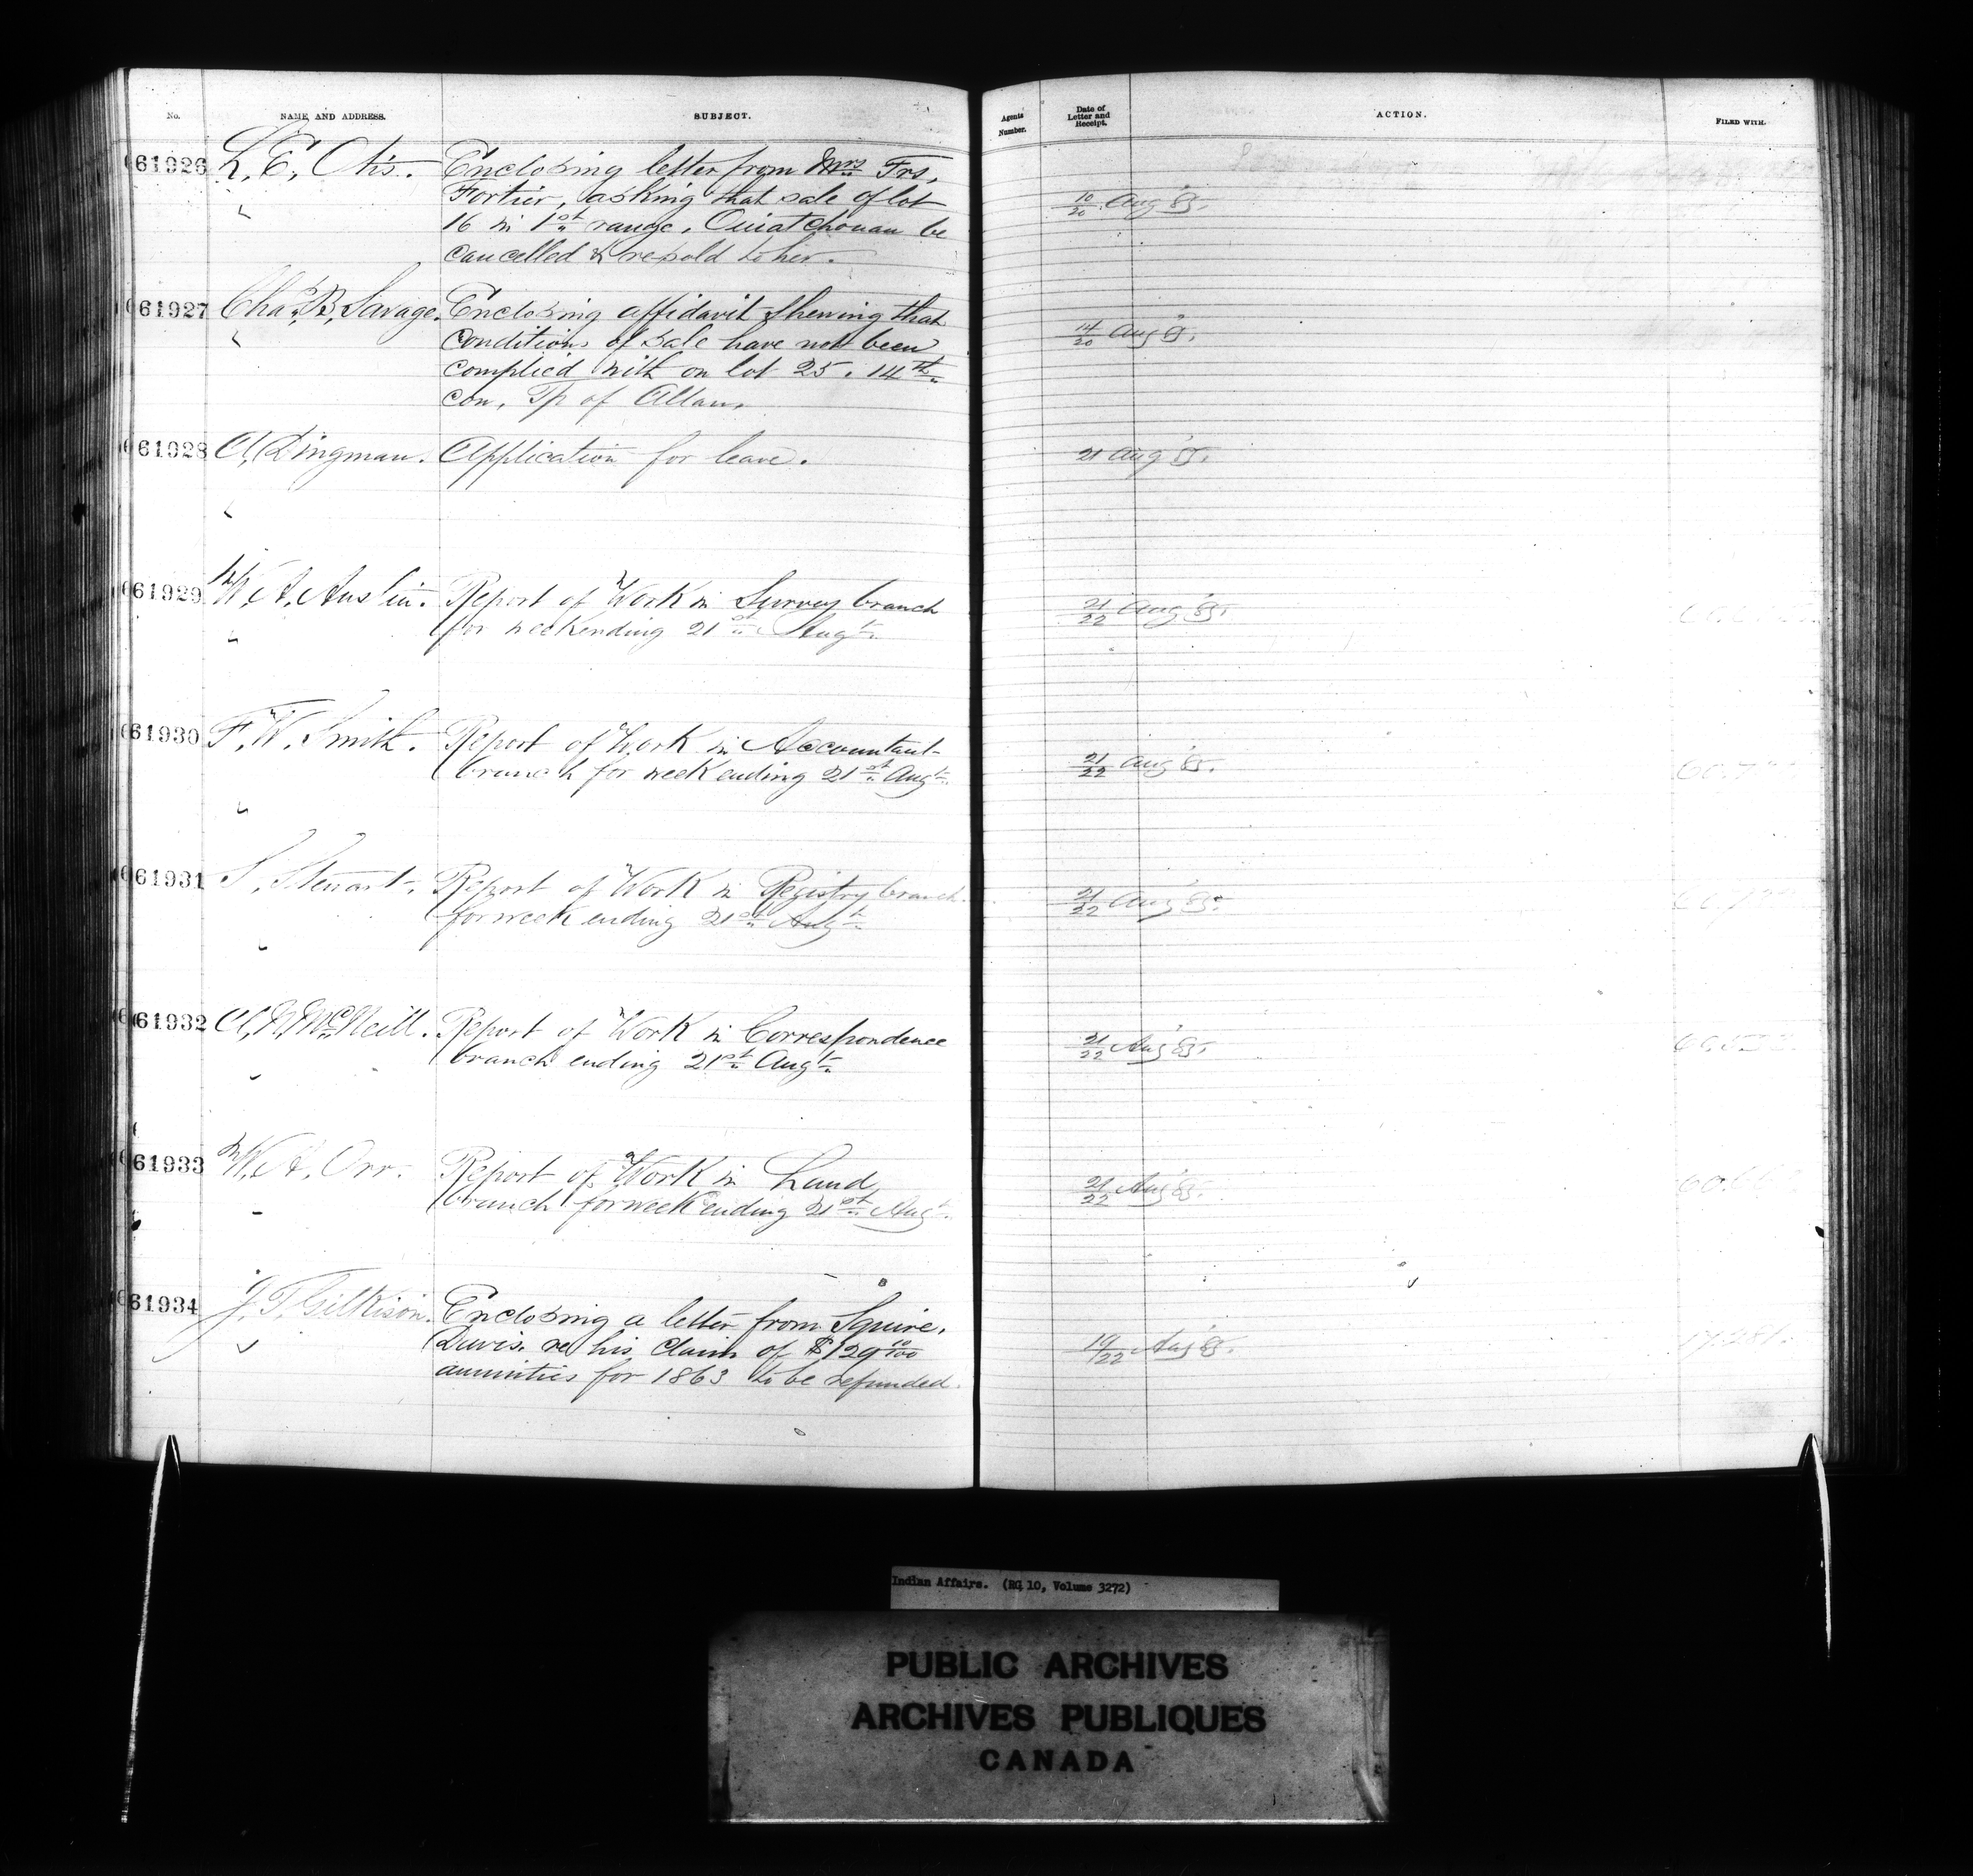 No.
NAME AND ADDRESS.
SUBJECT.
Agents Number.
Date of Letter and Receipt.
ACTION.
FILED WITH.
61926 L. E. Otis. Enclosing letter from Mrs Frs.
Fortier, asking that sale of lot
16 in 1st range, Ouiatchouan be
cancelled & resold to her.
10/20 Aug '85.
61927 Chas. B. Savage. Enclosing affidavit shewing that
conditions of sale have not been
complied with on lot 25. 14th
con, Tp of Allan.
14/20 Aug
61928 A. Dingman. Application for leave.
21 Aug '85.
61929 W. A. Austin. Report of Work in Survey branch
for week ending 21st Augt.
21/22 Aug '85.
61930 F. W. Smith. Report of Work in Accountant
branch for week ending 21st Augt.
21/22 Aug '85.
61931 S. Stewart. Report of Work in Registry branch
for week ending 21st Augt.
21/22 Aug '85.
61932 A. N. McNeill. Report of Work in Correspondence
branch ending 21st Augt.
21/22 Aug '85.
61933 W. A. Orr. Report of Work in Land
branch for week ending 21st Augt.
21/22 Aug '85.
61934 J. T. Gilkison. Enclosing a letter from Squire.
Davis. re his claim of $129 10/100
annuities for 1863 to be refunded.
19/22 Aug '85.
Indian Affairs. (RG 10, Volume 3272)
PUBLIC ARCHIVES
ARCHIVES PUBLIQUES
CANADA